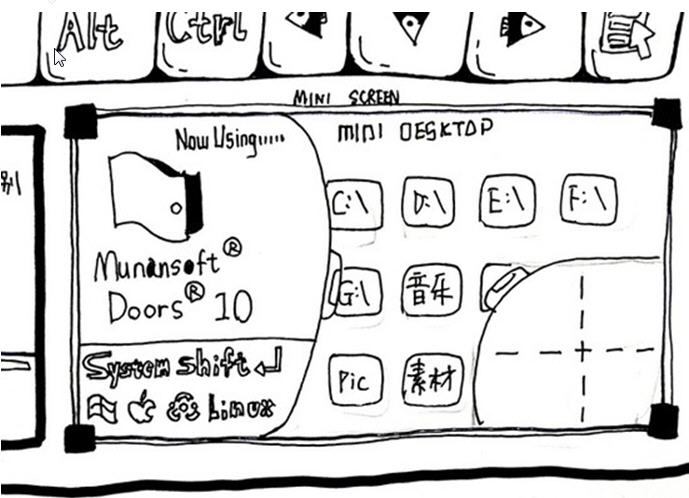 Alt Ctrl
MINI SCREEN
Now Using.....
MINI DESKTOP
C:\ D:\ E:\ F:\
Munansoft®
Doors® 10
G:\ 音乐
System shift
Linux
Pic 素材